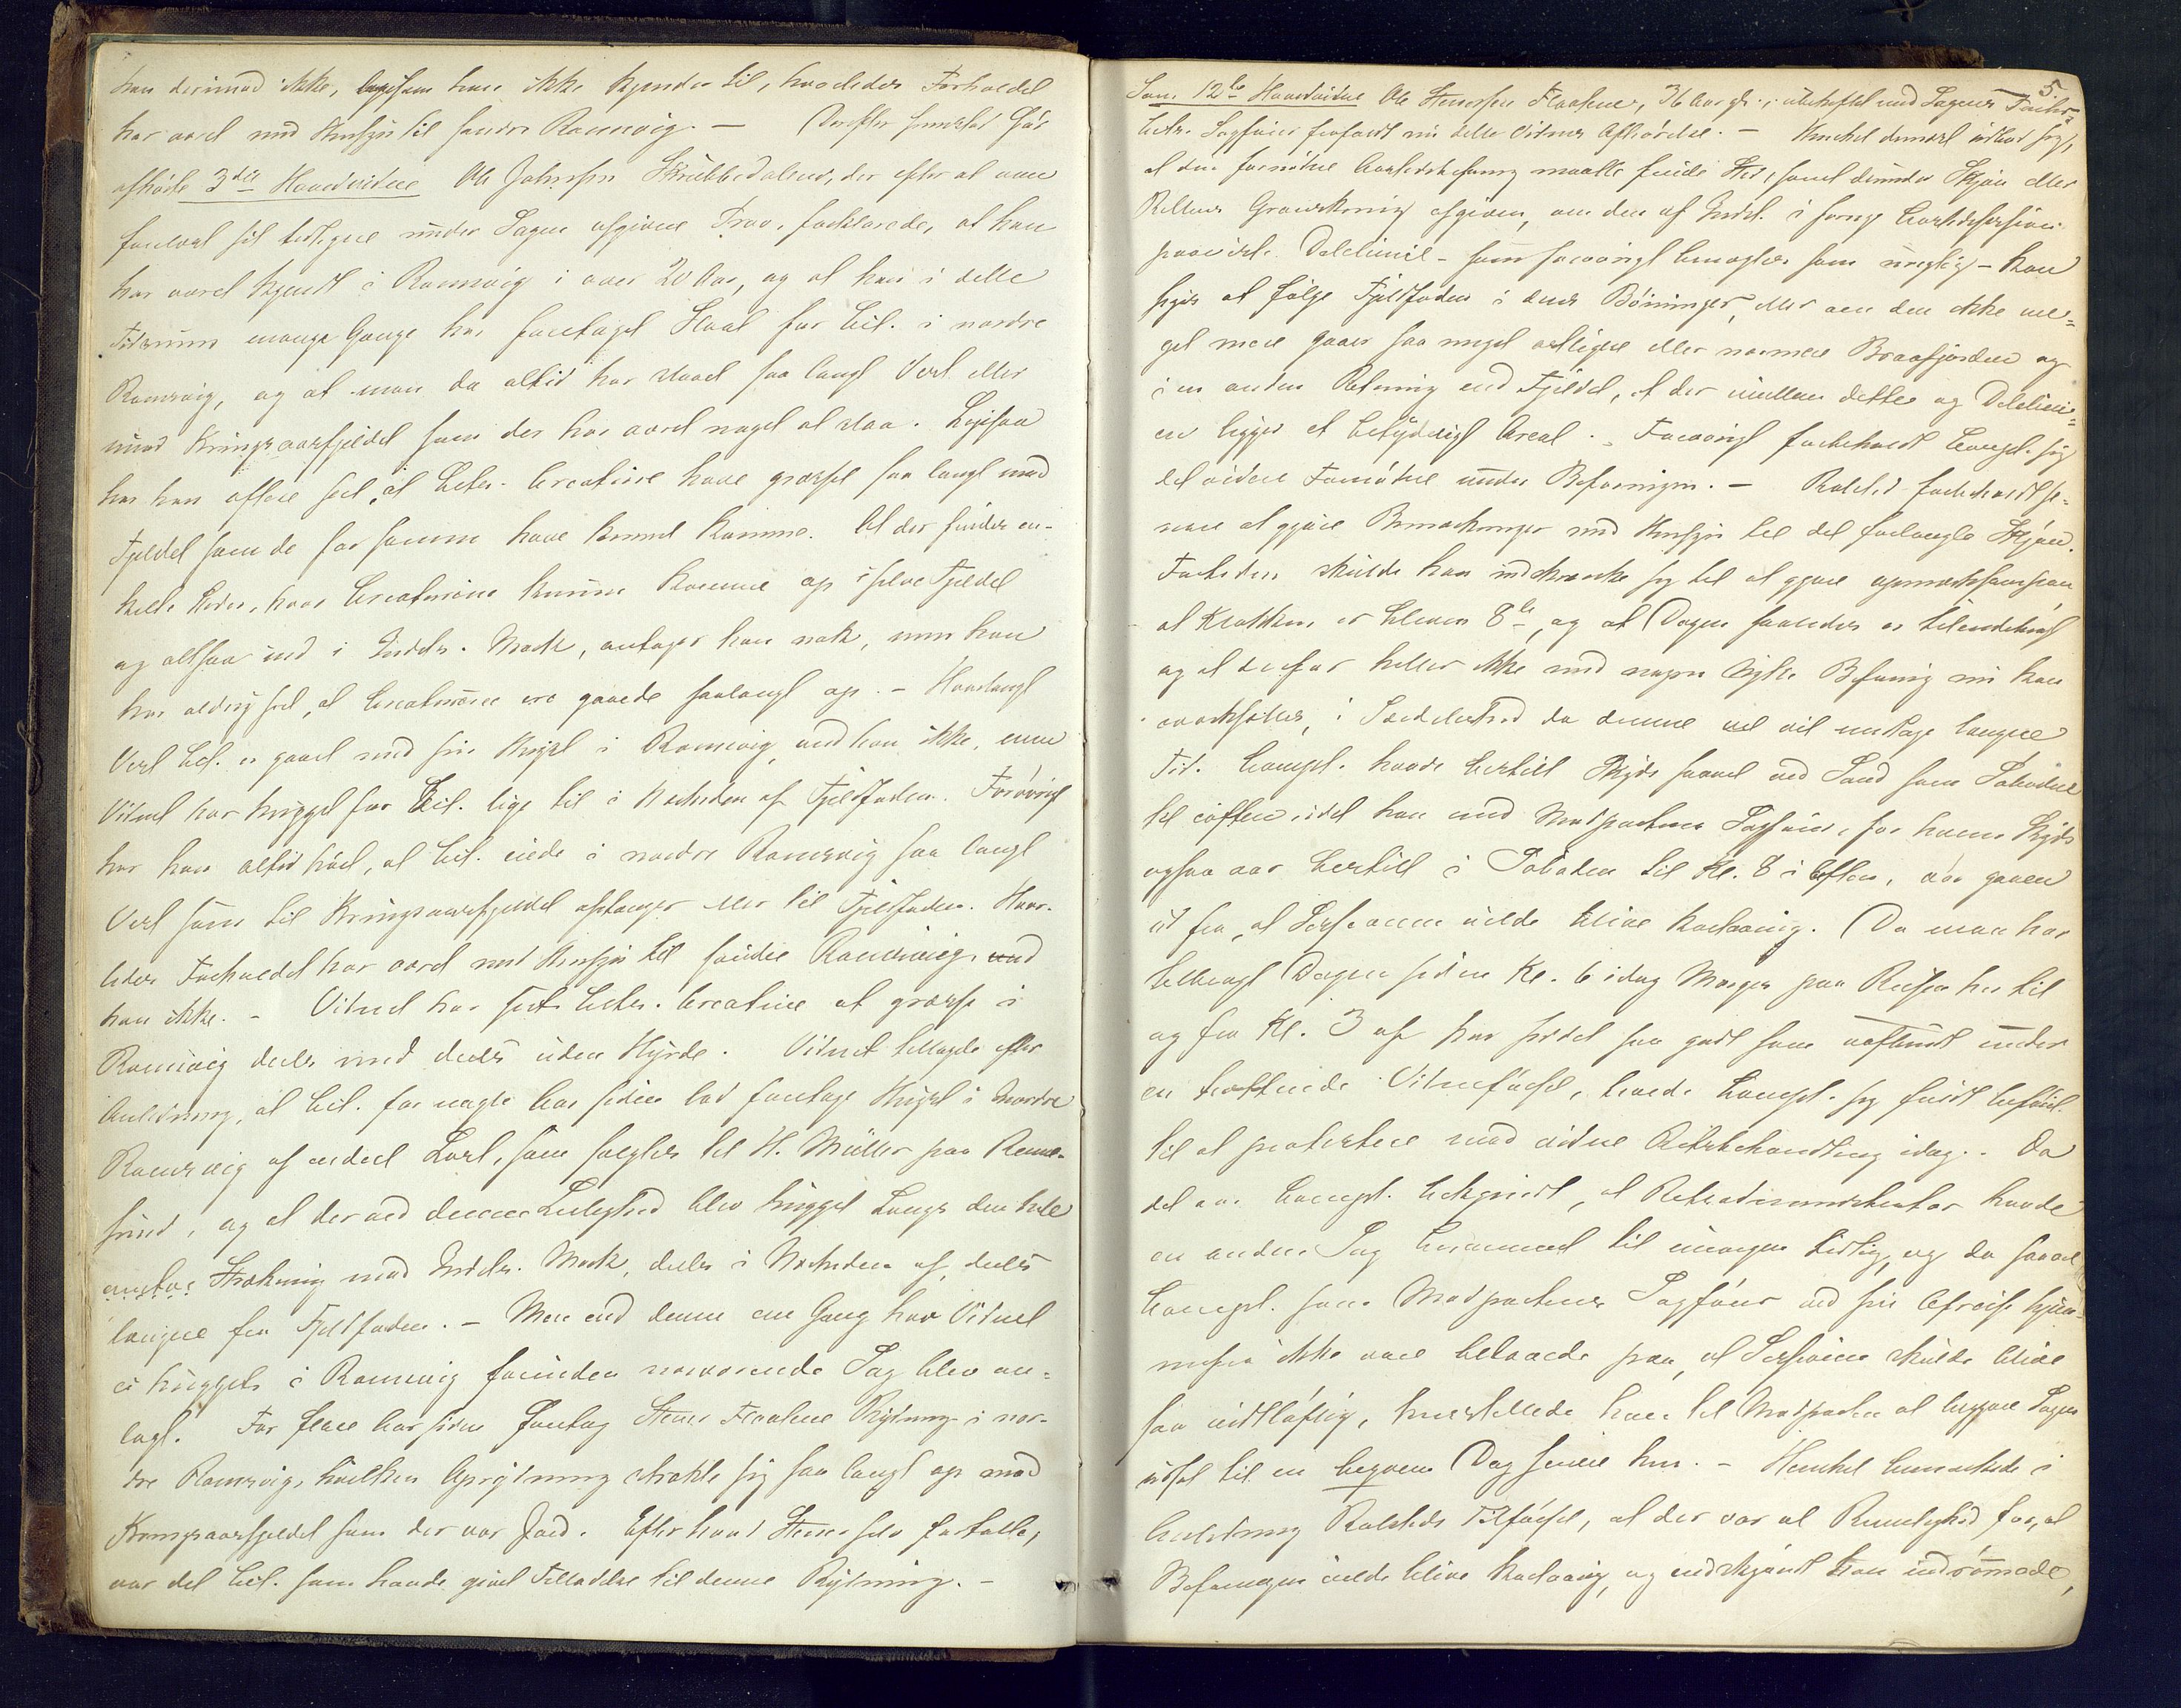 han derimod ikke, ligesom han ikke kjender til, hvorledes Forholdet
har været med Hensyn til søndre Ramsvig. — Derefter fremstod
afhørte 3die Hovedvidne Ole Johnsen Skrubbedalen, der efter at være
forelæst sit tidligere under Sagen afgivne Prov, forklarede, at han
har været kjendt i Ramsvig i over 20 Aar, og at han i dette
Tidsrum mange Gange har foretaget Slaat for Cit. i nordre
Ramsvig, og at man da altid har slaaet saa langt Vest eller
mod Kringsaarfjeldet som der har været noget at slaa. Ligesaa
har han oftere seet, at Citts. Creaturer have græsset saa langt mod
Fjeldet som de for samme have kunnet komme. At der findes en-
kelte Steder, hvor Creaturene kunne komme op i selve Fjeldet
og altsaa ind i Indst. Mark, antager han nok, men han
har aldrig seet, at Creaturene ere gaaede saalangt op. — Hvorlangt
Vest Cit. er gaaet med sin Hugst i Ramsvig ved han ikke, men
Vidnet har hugget for Cit. lige til i Nærheden af Fjeldfoden. Forøvrigt
har han altid hørt, at Cit. eiede i nordre Ramsvig saa langt
Vest som til Kringsaarfjeldet opstanger eller til Fjeldfoden. Hvor-
ledes Forholdet har været med Hensyn til søndre Ramsvig, ved
han ikke. – Vidnet har seet Citts. Creature at græsse i
Ramsvig deels med deels uden Hyrde. Vidnet tillagde efter
Anledning, at Cit. for nogle Aar siden lod foretage Hugst i Nordre
Ramsvig af endeel Last, som solgtes til H. Müller paa
sund, og at der ved denne Leilighed blev hugget Langs den hele
Strækning mod Indsts. Mark, deels i Nærheden af, deels
længere fra Fjeldfoden. – Mere end denne ene Gang har Vidnet
ei hugget i Ramsvig førinden nærværende Sag blev an-
lagt. For flere Aar siden foretog Stener Flaatene Rydning i nor-
dre Ramsvig, hvilken Oprydning strakte sig saa langt op mod
Kringsaarfjeldet som der var Jord. Efter hvad Stener selv fortalte,
var det Cit. som havde givet Tilladelse til denne Rydning. –
5.
Som 12te Hovedvidne Ole Stenersen Flaatene, 36 Aar gl., ubeheftet med Sagens Parter.
Citts. Sagfører frafaldt nu dette Vidnes Afhørelse. — Henckel dernæst udbad sig,
at den fornødne Aastedsbefaring maatte finde Sted, samt derunder Skjøn eller
Rettens Granskning afgiven, om den af Indst. i forrige Aastedssession
paaviste Delelinie – som forøvrigt benægtes som urigtig – kan
siges at følge Fjeldfoden i dens Bøininger, eller om den ikke me-
get mere gaaer saa meget østligere eller nærmere Braafjorden og
i en anden Retning end Fjeldet, at der imellem dette og Delelini-
en ligger et betydeligt Areal. – Forøvrigt forbeholdt Compt. sig
det videre Fornødne under Befaringen. — Rolsted forbeholdt se-
nere at gjøre Bemærkninger med Hensyn til det forlangte Skjøn.
Forinden skulde han indskrænke sig til at gjøre opmærksom paa
at Klokken er bleven 8te, og at Dagen saaledes er tilendebragt
og at derfor heller ikke med nogen Nytte Befaring nu kan
iværksættes, i Særdeleshed da denne vel vil medtage længere
Tid. Compt. havde bestilt Skyds saavel ved Land som Søboden
til iaften, idet han med Modpartens Sagfører, for hvem Skyds
ogsaa var bestilt i Søboden til Kl. 8 i Aften, var gaaen
ud fra, at Sessionen vilde blive kortvarig. Da man har
tilbragt Dagen siden Kl. 6 idag Morges paa Reisen her til
og fra Kl. 3 af har siddet saa godt som uafbrudt under
en trættende Vidneførsel, havde Compt. sig fuldt beføiet
til at protestere mod videre Retsbehandling idag. Da
det var Compt. bekjendt, at Retsadministrator havde
en anden Sag berammet til imorgen tidlig, og da saavel
Compt. som Modpartens Sagfører ved sin Afreise hjem-
mefra ikke vare belavede paa, at Sessionen skulde blive
saa vidtløftig, henstillede han til Modparten at begjære Sagen
udsat til en beqvem Dag senere hen. – Henckel bemærkede i
Anledning Rolsteds Tilførsel, at der var al Rimelighed for, at
Befaringen vilde blive kortvarig, og endskjøndt han indrømmede,